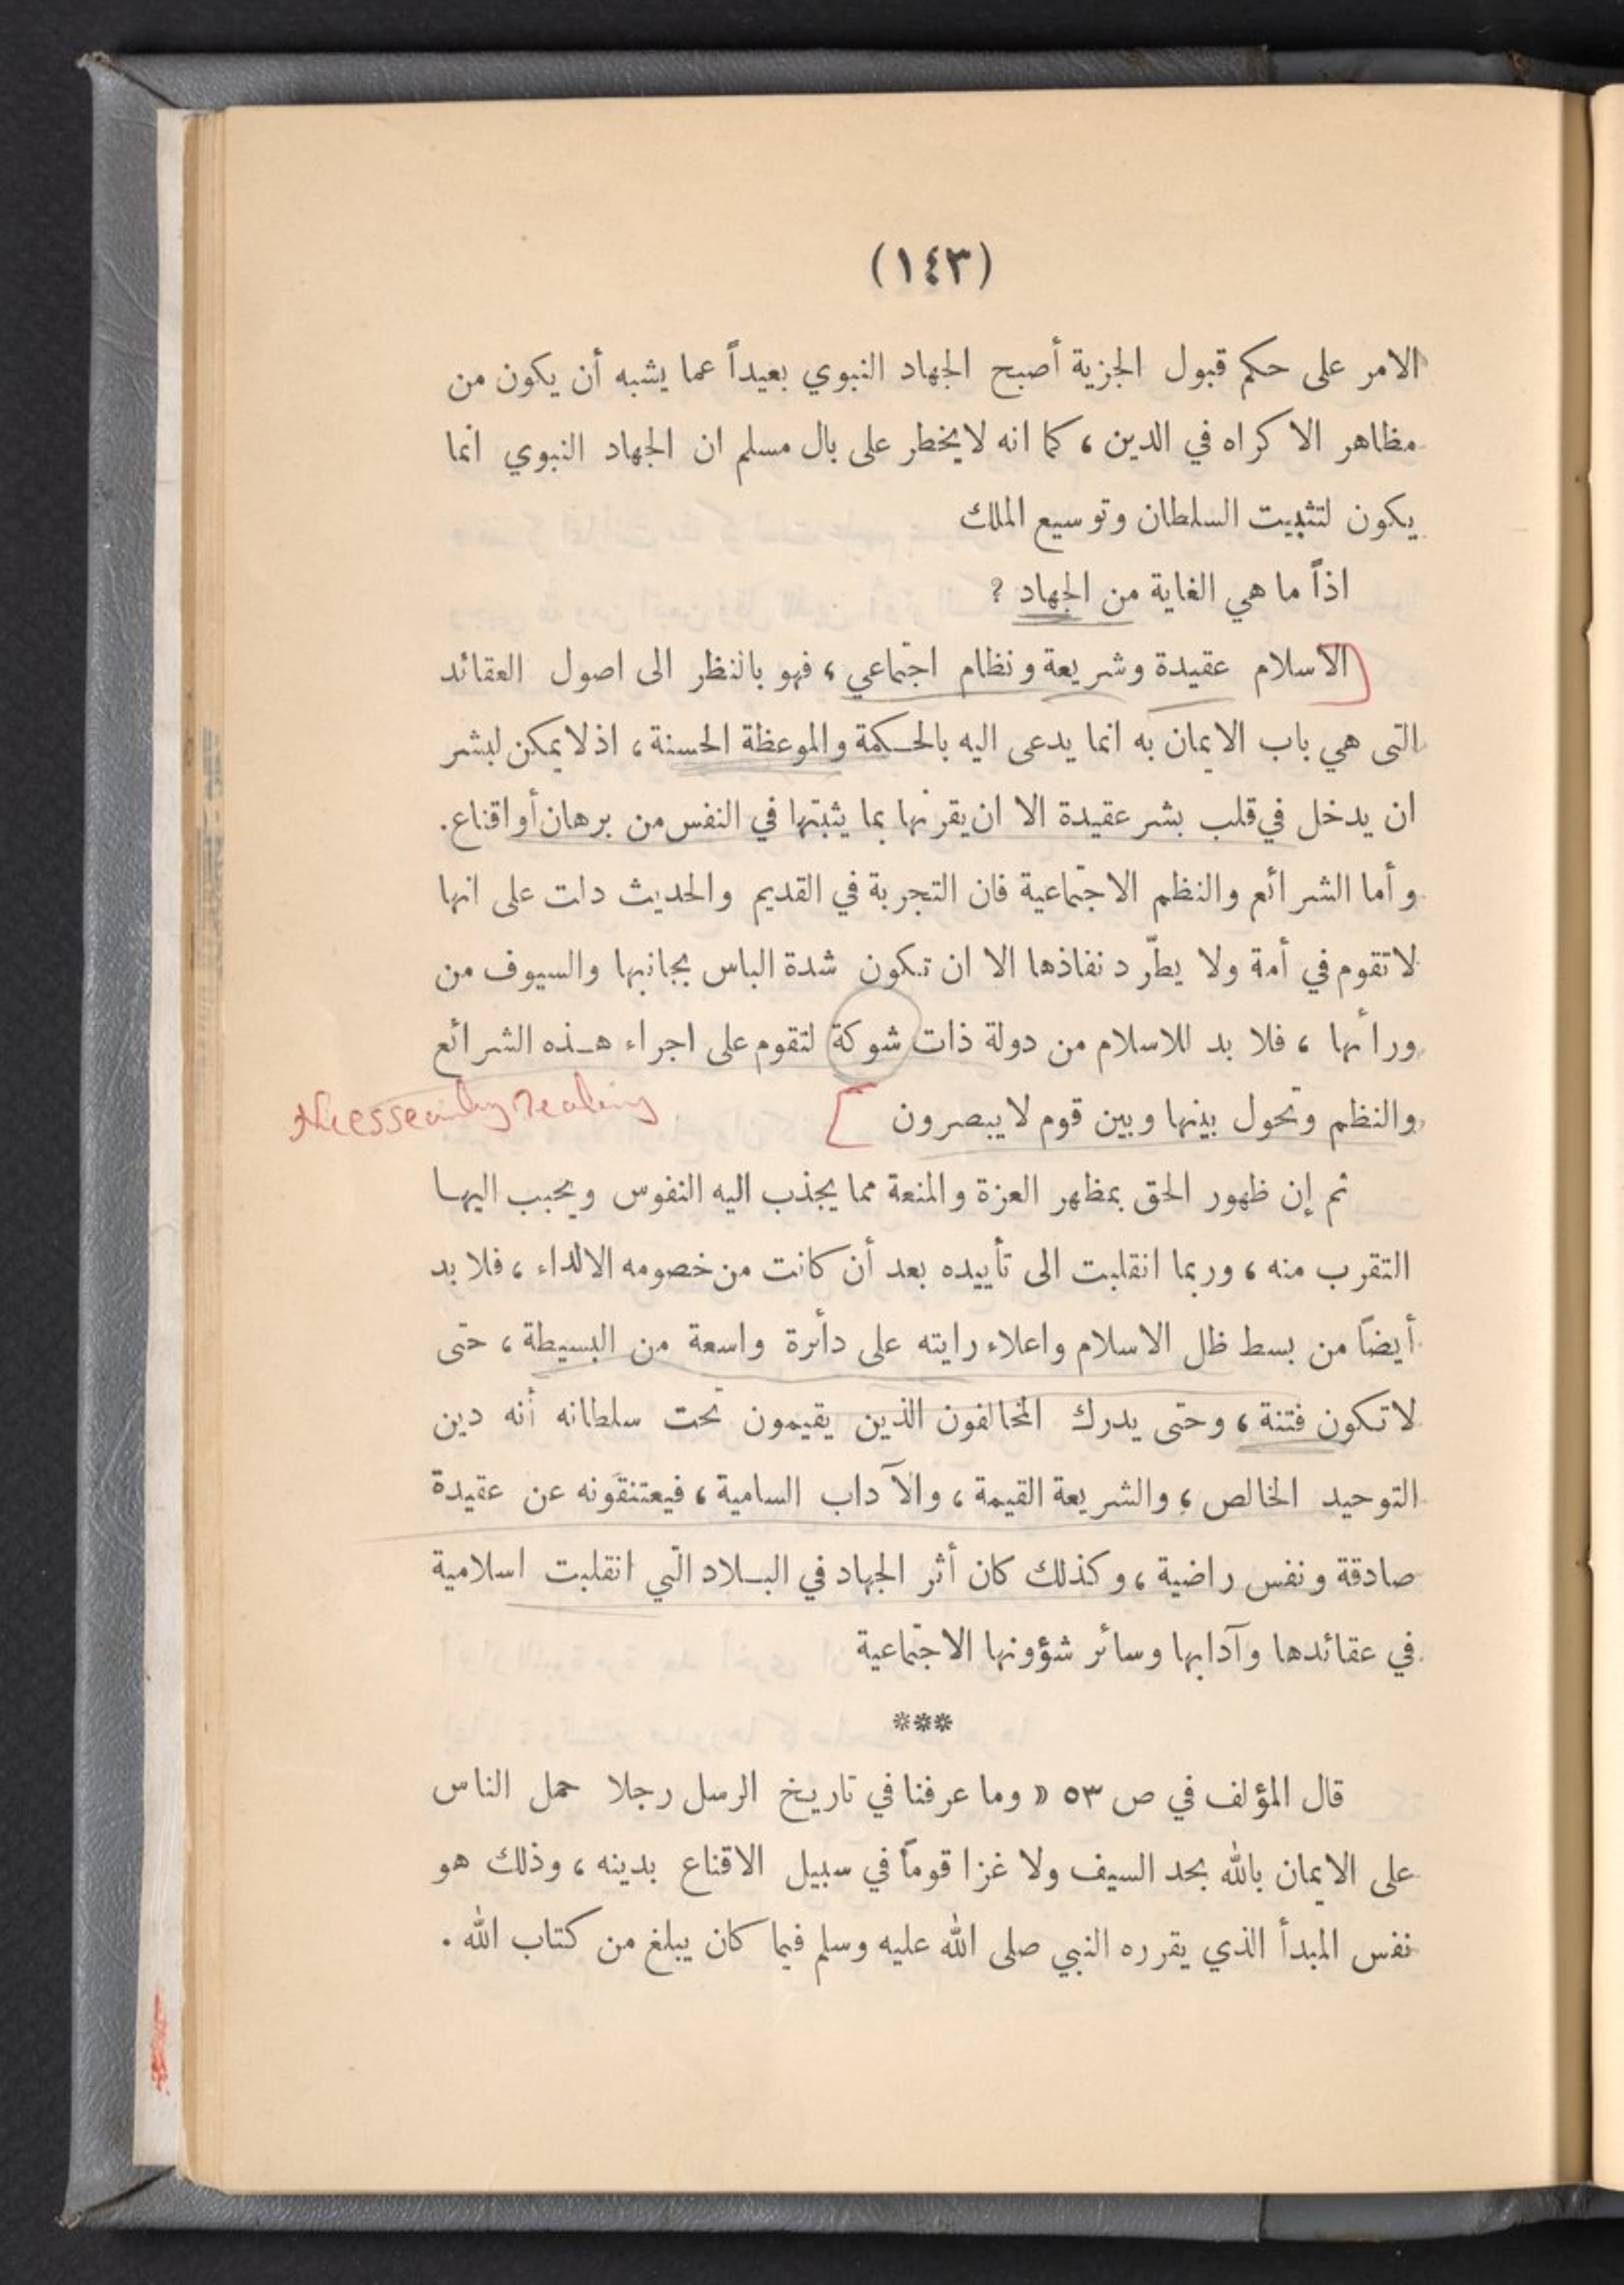 (١٤٣)
الامر على حكم قبول الجزية أصبح الجهاد النبوي بعيداً عما يشبه أن يكون من
مظاهر الاكراه في الدين ، كما انه لا يخطر على بال مسلم ان الجهاد النبوي انما
يكون لتثبيت السلطان وتوسيع الملك
اذاً ما هي الغاية من الجهاد ؟
الاسلام عقيدة وشريعة ونظام اجتماعي ، فهو بالنظر الى اصول العقائد
التى هي باب الايمان به انما يدعى اليه بالحكمة والموعظة الحسنة ، اذ لا يمكن لبشر
ان يدخل في قلب بشر عقيدة الا ان يقرنها بما يثبتها في النفس من برهان أو اقناع .
وأما الشرائع والنظم الاجتماعية فان التجربة في القديم والحديث دلت على انها
لا تقوم في أمة ولا يطّرد نفاذها الا ان تكون شدة الباس بجانبها والسيوف من
ورائها ، فلا بد للاسلام من دولة ذات شوكة لتقوم على اجراء هذه الشرائع
والنظم وتحول بينها وبين قوم لا يبصرون
ثم إن ظهور الحق بمظهر العزة والمنعة مما يجذب اليه النفوس ويحبب اليها
التقرب منه ، وربما انقلبت الى تأييده بعد أن كانت من خصومه الالداء ، فلا بد
أيضاً من بسط ظل الاسلام واعلاء رايته على دائرة واسعة من البسيطة ، حتى
لا تكون فتنة ، وحتى يدرك المخالفون الذين يقيمون تحت سلطانه أنه دين
التوحيد الخالص ، والشريعة القيمة ، والآداب السامية ، فيعتنقونه عن عقيدة
صادقة ونفس راضية ، وكذلك كان أثر الجهاد في البلاد التي انقلبت اسلامية
في عقائدها وآدابها وسائر شؤونها الاجتماعية
***
قال المؤلف في ص ٥٣ « وما عرفنا في تاريخ الرسل رجلا حمل الناس
على الايمان بالله بحد السيف ولا غزا قوماً في سبيل الاقناع بدينه ، وذلك هو
نفس المبدأ الذي يقرره النبي صلى الله عليه وسلم فيما كان يبلغ من كتاب الله .